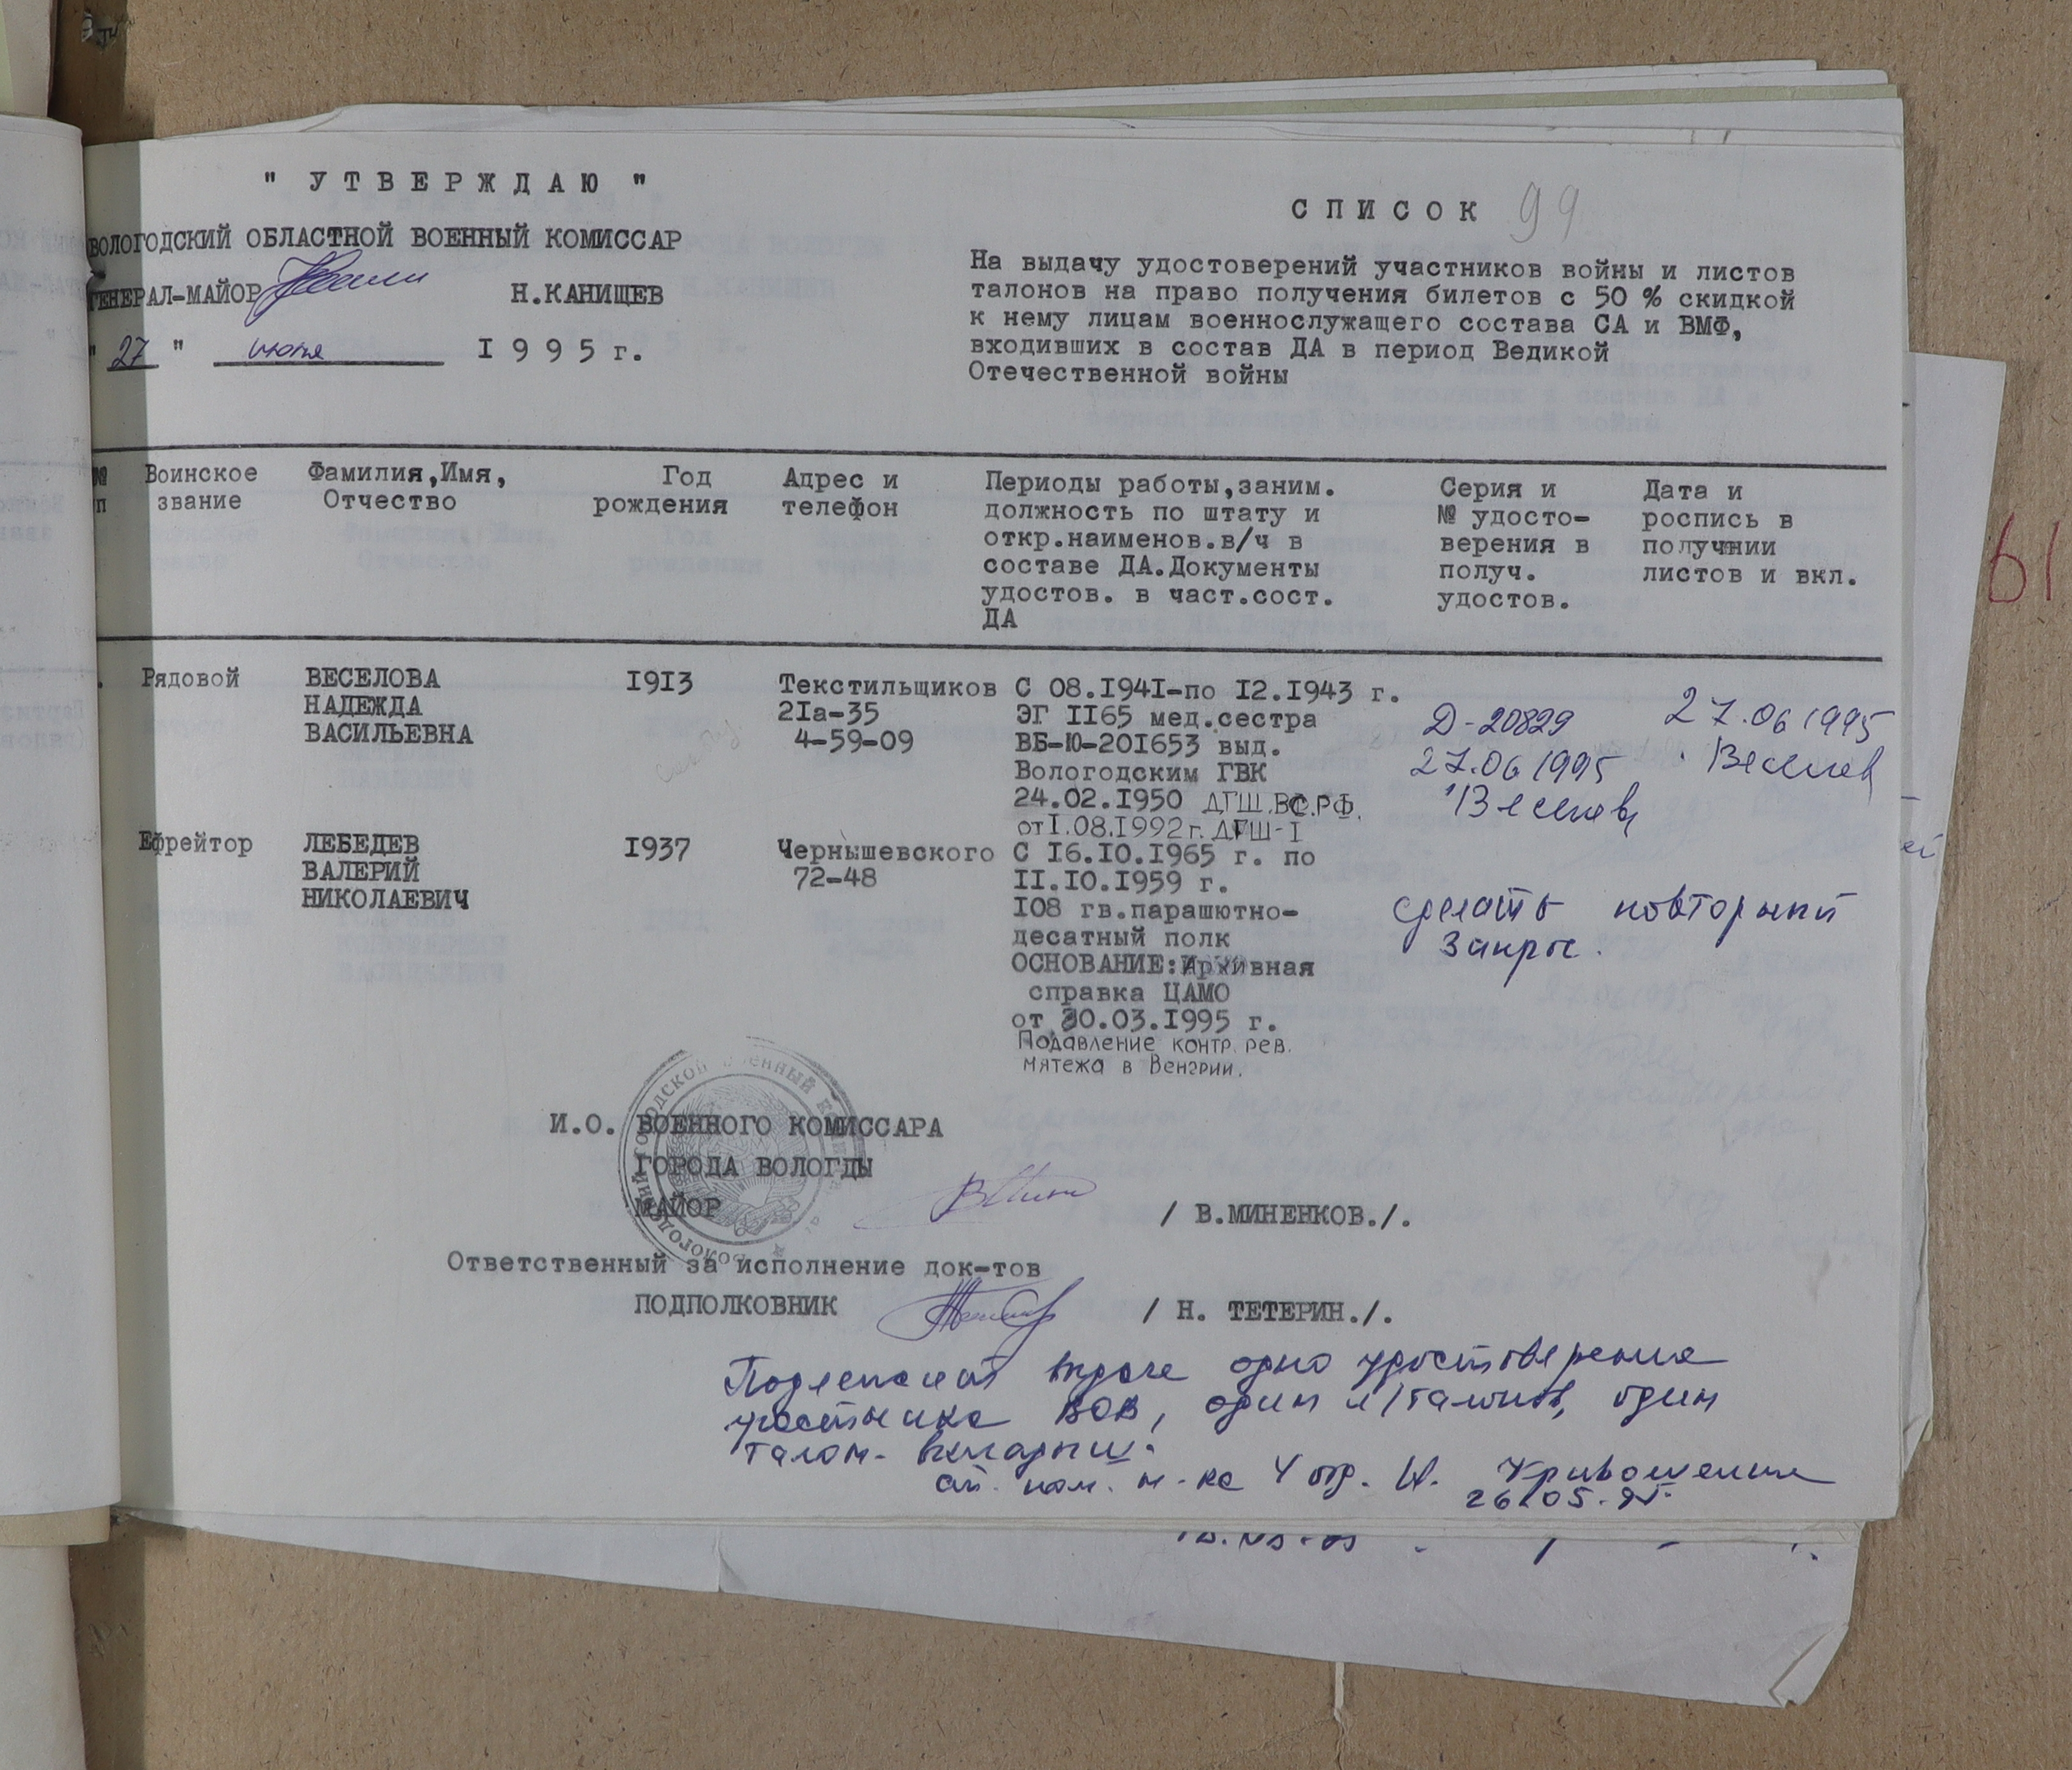 " У Т В Е Р Ж Д А Ю "
ВОЛОГОДСКИЙ ОБЛАСТНОЙ ВОЕННЫЙ КОМИССАР
ГЕНЕРАЛ-МАЙОР Н.КАНИЩЕВ
" 27 " июня I 9 9 5 г.
С П И С О К 99
На выдачу удостоверений участников войны и листов
талонов на право получения билетов с 50 % скидкой
к нему лицам военнослужащего состава СА и ВМФ,
входивших в состав ДА в период Ведикой
Отечественной войны
№
п
Воинское
звание
Фамилия,Имя,
Отчество
Год
рождения
Адрес и
телефон
Периоды работы,заним.
должность по штату и
откр.наименов.в/ч в
составе ДА.Документы
удостов. в част.сост.
ДА
Серия и
№ удосто-
верения в
получ.
удостов.
Дата и
роспись в
получнии
листов и вкл.
61
Рядовой
ВЕСЕЛОВА
НАДЕЖДА
ВАСИЛЬЕВНА
I9I3
Текстильщиков
2Iа-35
4-59-09
С 08.I94I-по I2.I943 г.
ЭГ II65 мед.сестра
ВБ-Ю-20I653 выд.
Вологодским ГВК
24.02.I950 ДГШ.ВС.РФ.
от I.08.I992 г. ДГШ-I
Д-20829
27.06 1995
27.06 1995
Ефрейтор
ЛЕБЕДЕВ
ВАЛЕРИЙ
НИКОЛАЕВИЧ
I937
Чернышевского
72-48
С I6.I0.I965 г. по
II.I0.I959 г.
I08 гв.парашютно-
десатный полк
ОСНОВАНИЕ:Архивная
справка ЦАМО
от 30.03.I995 г.
Подавление контр. рев.
мятежа в Венгрии.
сделать повторный
запрос.
И.О. ВОЕННОГО КОМИССАРА
ГОРОДА ВОЛОГДЫ
МАЙОР / В.МИНЕНКОВ./.
Ответственный за исполнение док-тов
ПОДПОЛКОВНИК / Н. ТЕТЕРИН./.
Подлежит выдаче одно удостоверение
участника ВОВ, один л/талонов, один
талон- вкладыш.
ст. пом. н-ка 4 отд. Н.
26.05.95.